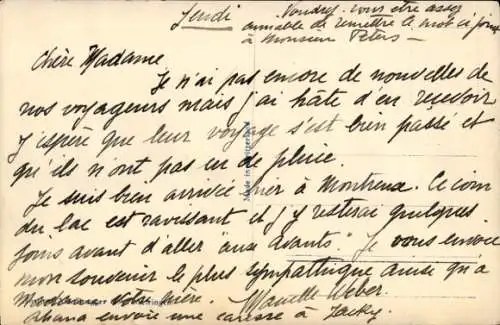 Jeudi
Voudrez-vous être assez
aimable de remettre le mot ci joint
à Monsieur Peters —
Chère Madame
Je n'ai pas encore de nouvelles de
nos voyageurs mais j'ai hâte d'en recevoir
J'espère que leur voyage s'est bien passé et
qu'ils n'ont pas eu de pluie.
Je suis bien arrivée hier à Montreux. Ce coin
du lac est ravissant et j'y resterai quelques
jours avant d'aller "aux Avants". Je vous envoie
mon souvenir le plus sympathique ainsi qu'à
votre mère. Marcelle Weber
envoie une caresse à Jacky
Made in Switzerland